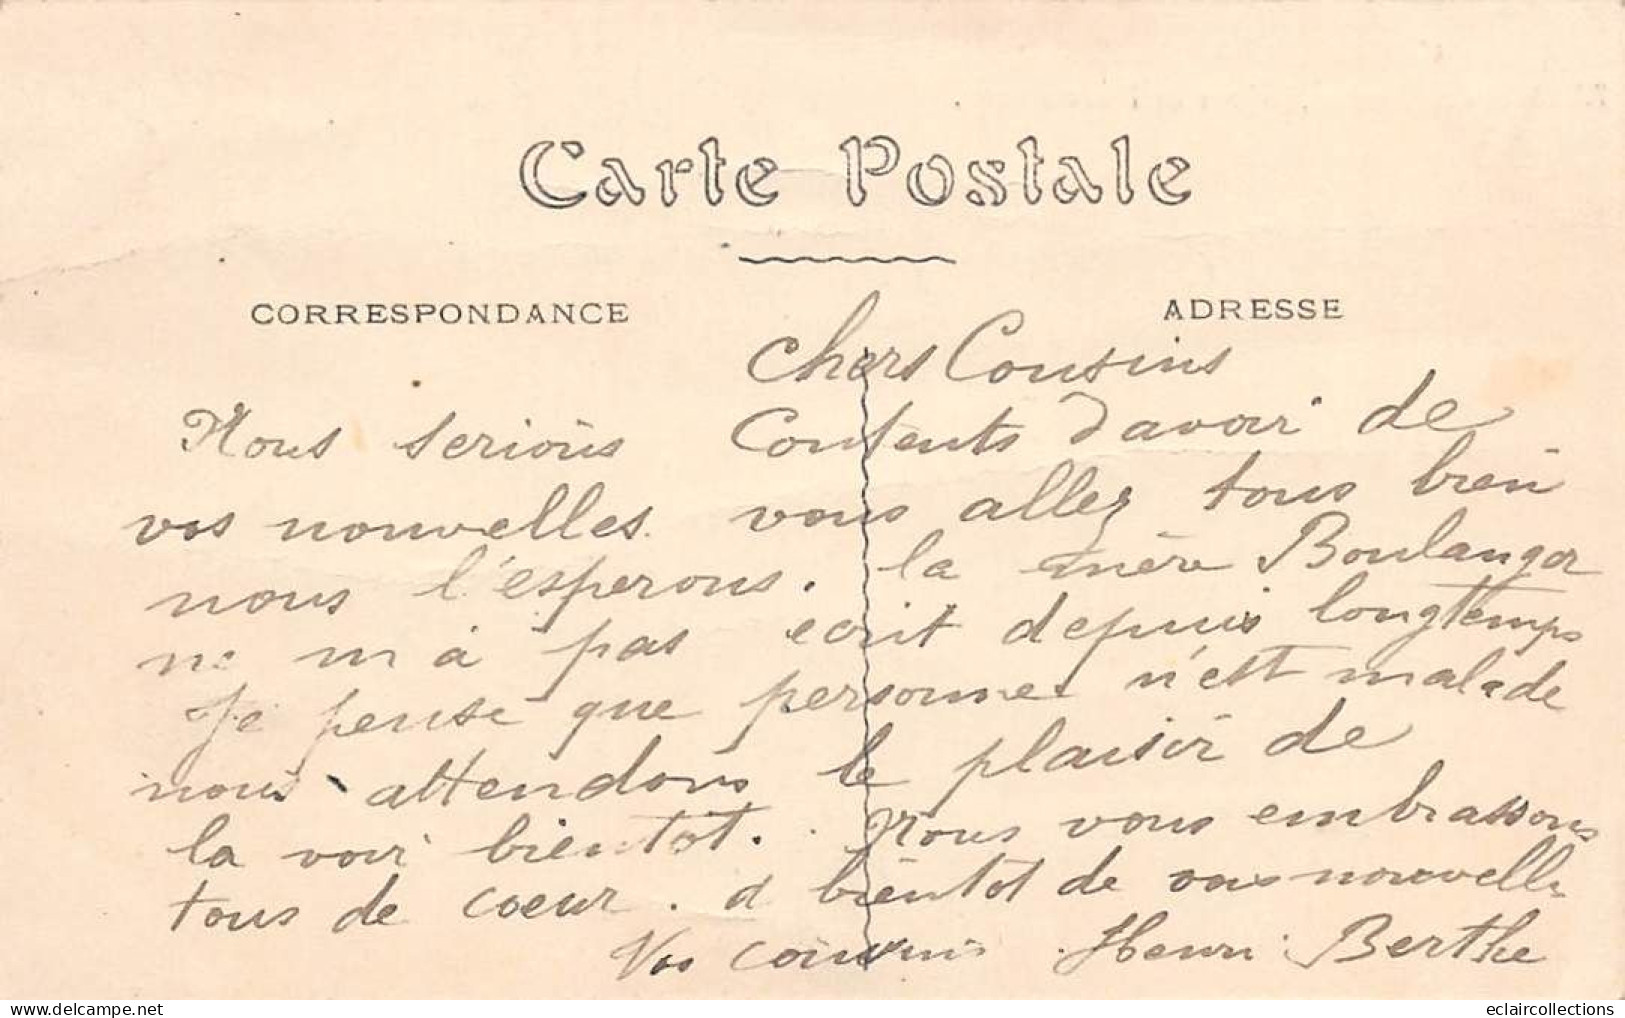 Carte Postale
CORRESPONDANCE
ADRESSE
Chers Cousins
Nous serions Contents d'avoir de
vos nouvelles. vous allez tous bien
nous l'esperons. la mère Boulanger
ne m a pas ecrit depuis longtemps
Je pense que personne n'est malade
nous attendons le plaisir de
la voir bientot. Nous vous embrassons
tous de coeur. a bientot de vos nouvelles
Vos cousins Henri Berthe
eclaircollections